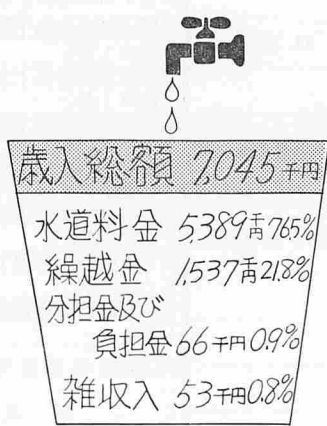 歳入総額 7,045千円
水道料金 5,389千円 76.5%
繰越金 1,537千円 21.8%
分担金及び
負担金 66千円 0.9%
雑収入 53千円 0.8%